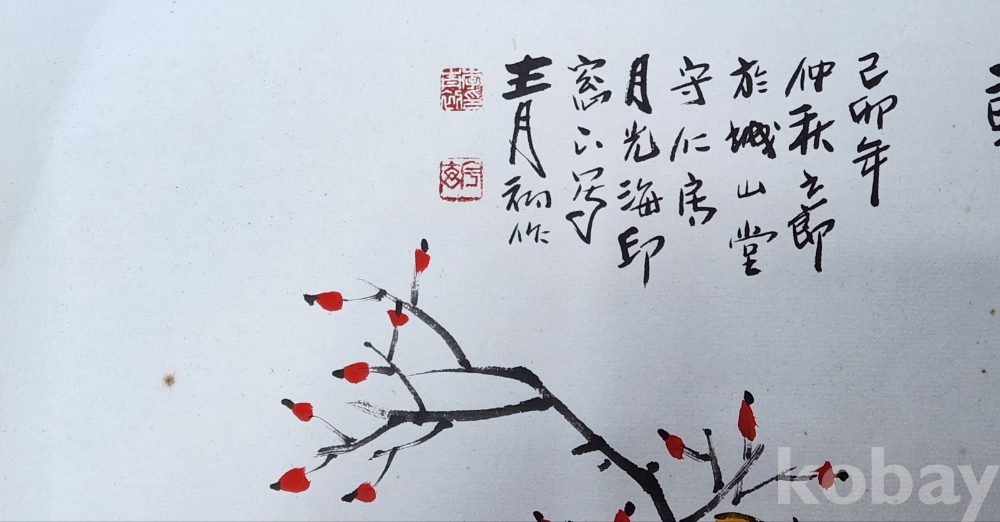 己卯年
仲秋之節
於城山堂
守仁房
月光海印
窓下写
青月 作
kobay